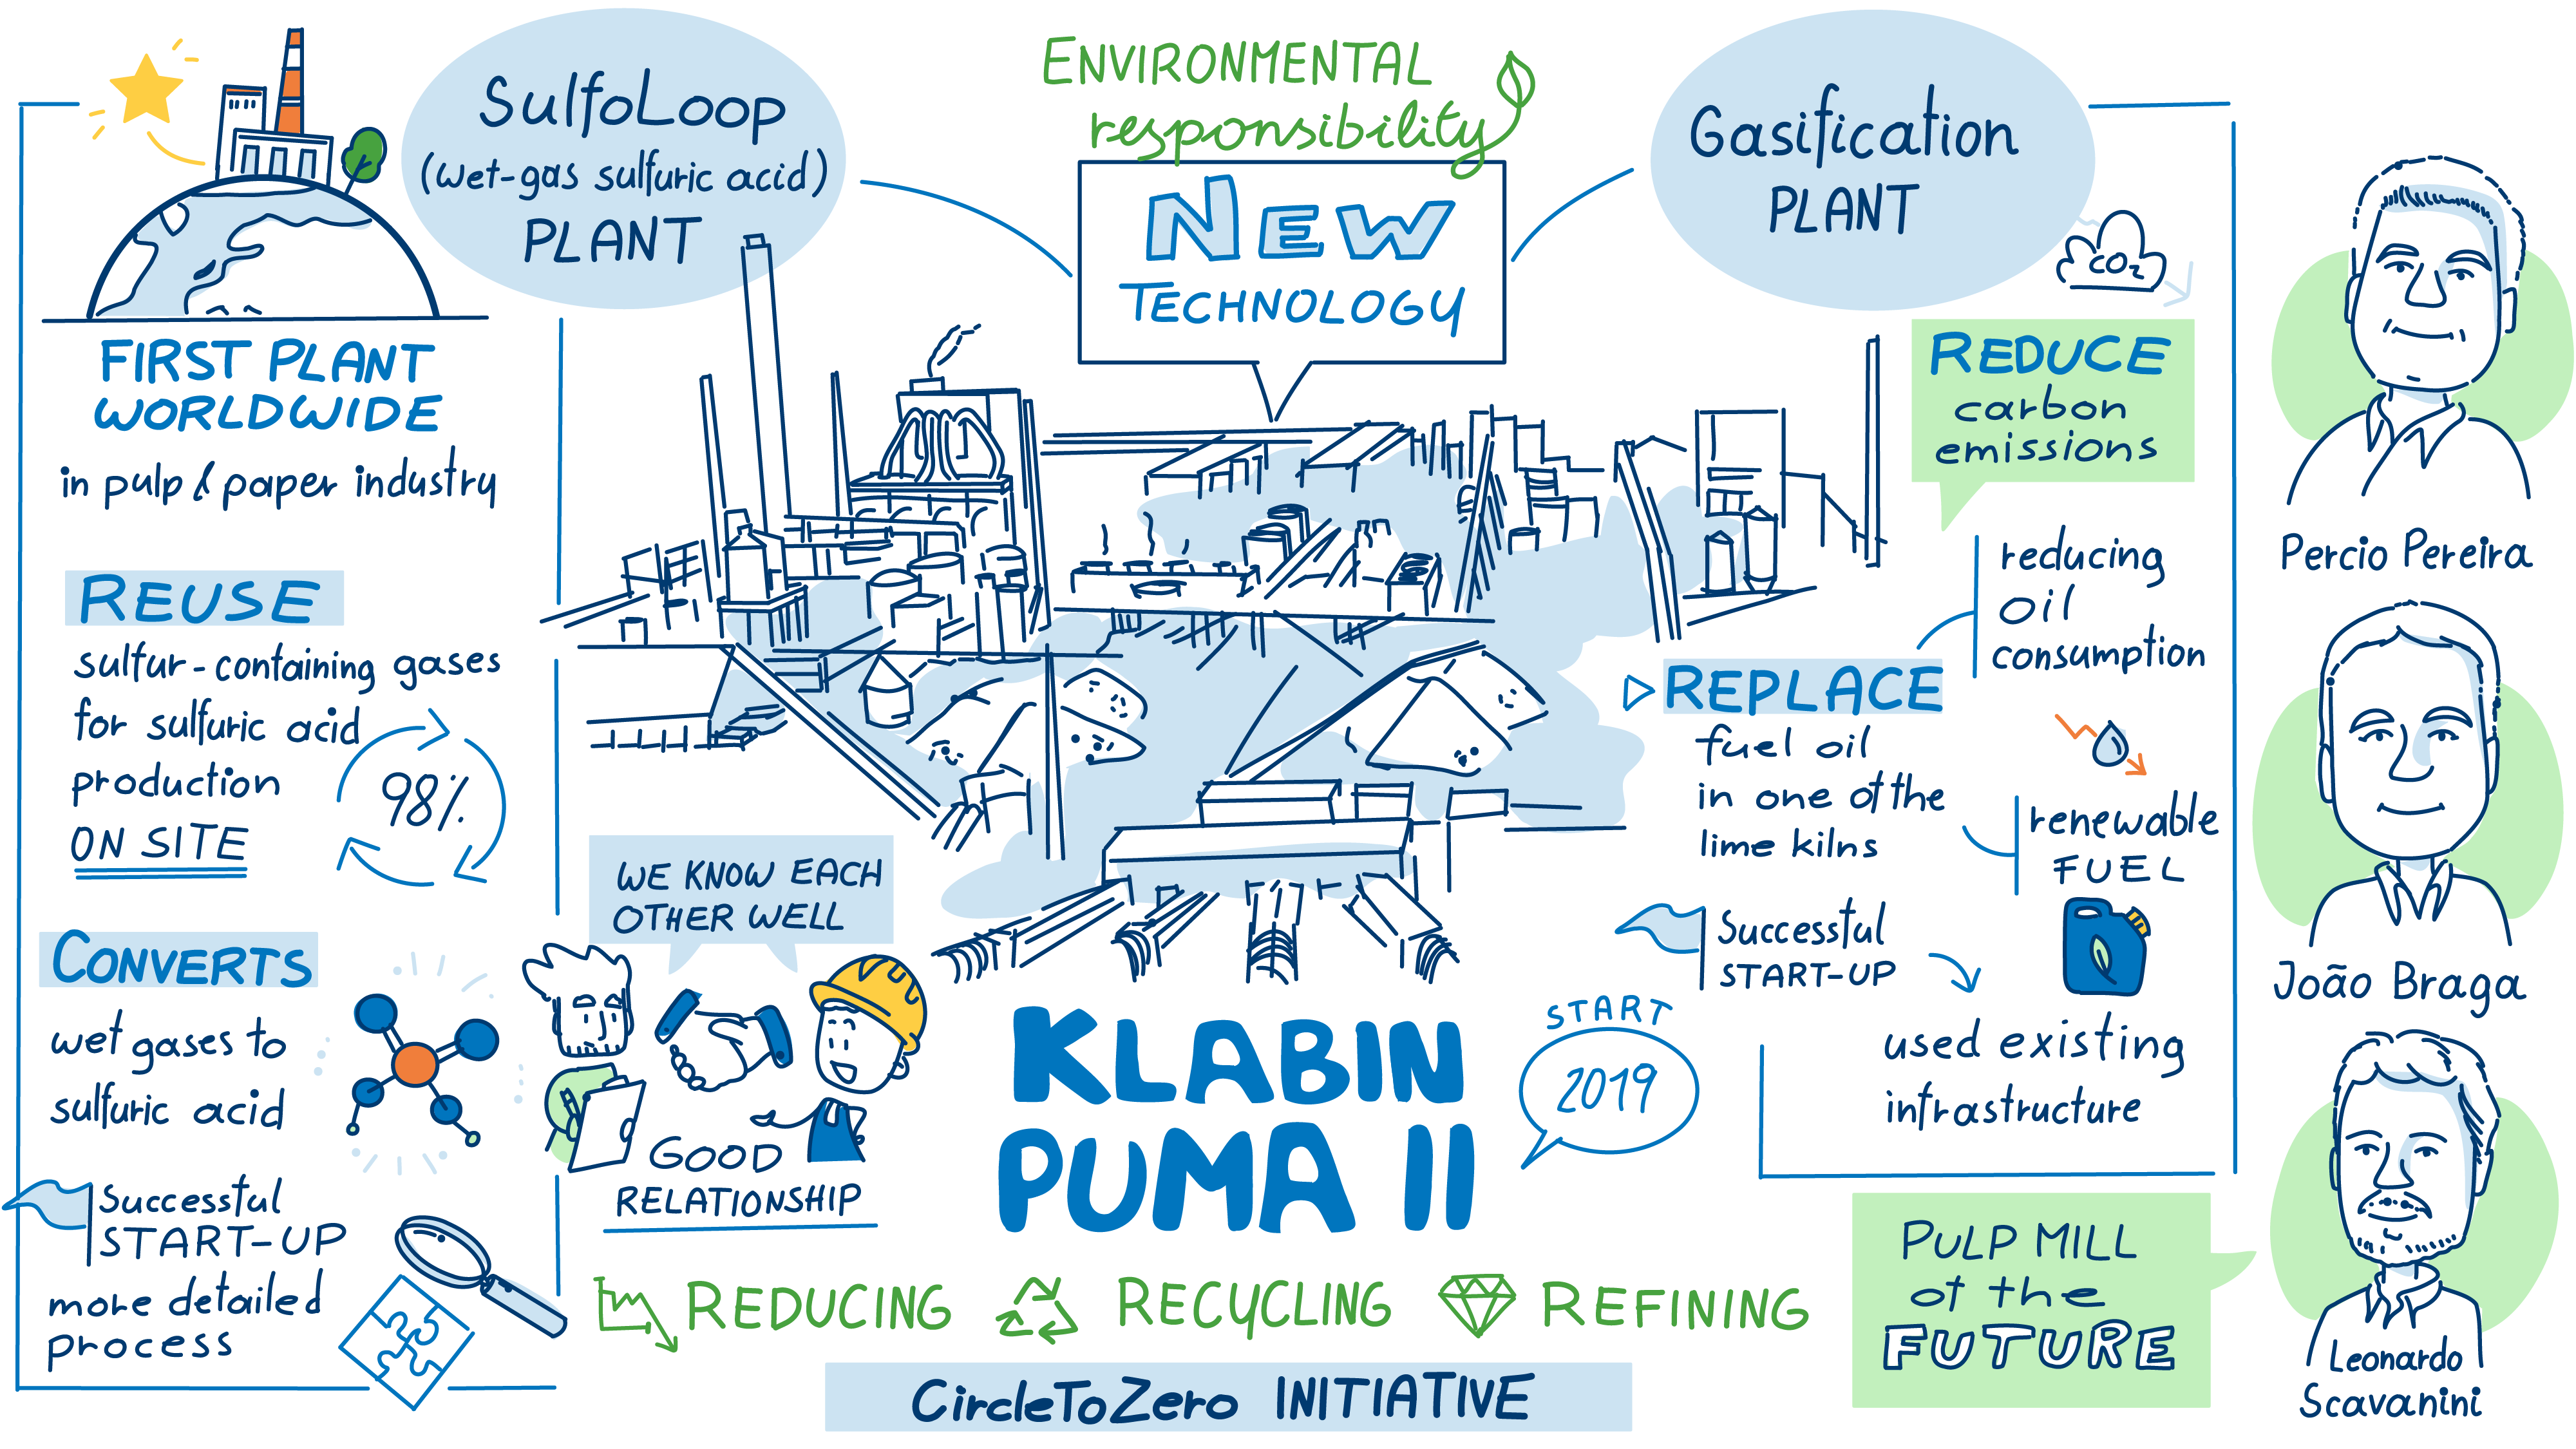 SulfoLoop
(wet-gas sulfuric acid)
PLANT
ENVIRONMENTAL
responsibility
NEW
TECHNOLOGY
Gasification
PLANT
FIRST PLANT
WORLDWIDE
in pulp & paper industry
REUSE
sulfur-containing gases
for sulfuric acid
production
ON SITE
98%
CONVERTS
wet gases to
sulfuric acid
Successful
START-UP
more detailed
process
WE KNOW EACH
OTHER WELL
GOOD
RELATIONSHIP
KLABIN
PUMA II
START
2019
REDUCING
RECYCLING
REFINING
CircleToZero INITIATIVE
CO2
REDUCE
carbon
emissions
reducing
oil
consumption
REPLACE
fuel oil
in one of the
lime kilns
renewable
FUEL
Successful
START-UP
used existing
infrastructure
PULP MILL
of the
FUTURE
Percio Pereira
João Braga
Leonardo
Scavanini